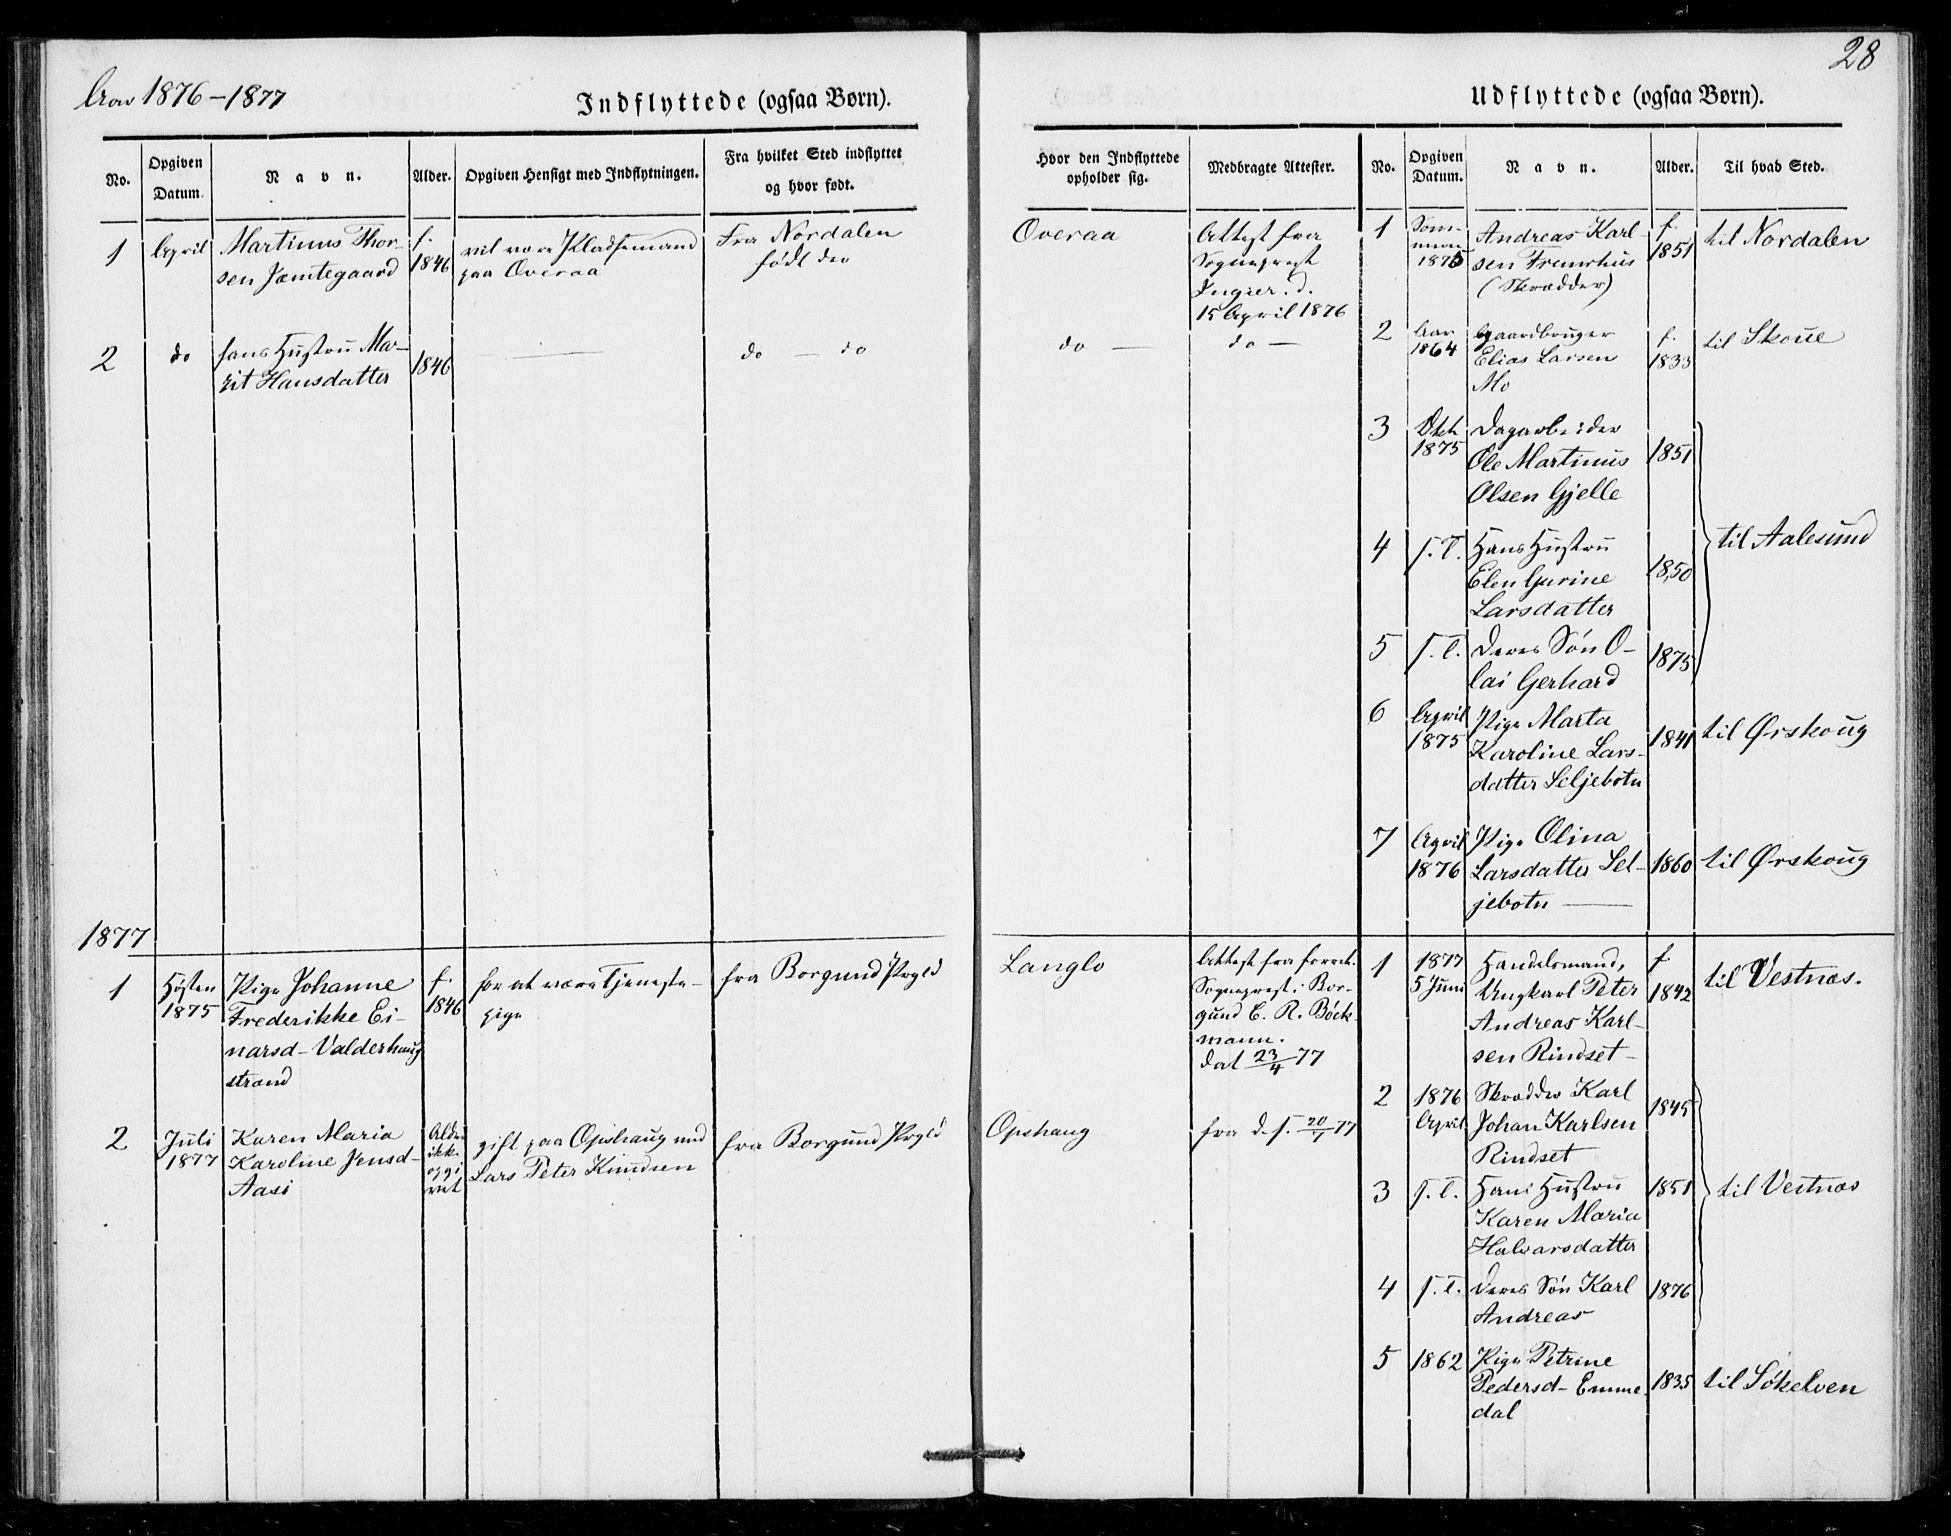 28
Aar 1876-1877
Indflyttede (ogsaa Børn).
No.
Opgiven
Datum.
Navn.
Alder.
Opgiven Hensigt med Indflytningen.
Fra hvilket Sted indflyttet
og hvor født.
Hvor den Indflyttede
opholder sig.
Medbragte Attester.
1
April
Martinus Thor-
sen Jæmtegaard
f.
1846
vil være Pladsemand
paa Overaa
Fra Nordalen
født der
Overaa
Attest fra
Sogneprest
d.
15 April 1876
2
do
hans Hustru Mar-
rit Hansdatter
1846
do — do
do —
do —
1877
1
Høsten
1875
Pige Johanne
Frederikke Ei-
narsd- Valderhaug
strand
f.
1846
for at være Tjeneste-
pige
fra Borgund Prgld
Langlo
Attest fra forret.
Sogneprest i Bor-
gund C. R. Böck-
mann.
dat 23/4 77
2
Juli
1877
Karen Maria
Karoline Jensd-
Aasi
Alder
ikke
opgi
vet
gift paa Opshaug med
Lars Peter Knudsen
fra Borgund Prgld
Opshaug
fra d. s. 20/7 77
Udflyttede (ogsaa Børn).
No.
Opgiven
Datum.
Navn.
Alder.
Til hvad Sted.
1
Som-
meren
1875
Andreas Karl-
sen Fremrhus
(Skrædder)
f.
1851
til Nordalen
2
Aar
1864
Gaardbruger
Elias Larsen
Mo
f.
1833
til Skoue
3
Okt.
1875
Dagarbeider
Ole Martinus
Olsen Gjelle
1851
4
s. T.
Hans Hustru
Elen Gurine
Larsdatter
1850
til Aalesund
5
s. T.
Deres Søn O-
lai Gerhard
1875
6
April
1875
Pige Marta
Karoline Lars-
datter Seljebotn
1841
til Ørskoug
7
April
1876
Pige Olina
Larsdatter Sel-
jebotn —
1860
til Ørskoug
1
1877
5 Juni
Handelsmand,
Ungkarl Peter
Andreas Karl-
sen Rindset-
f.
1842
til Vestnæs.
2
1876
April
Skrædder Karl
Johan Karlsen
Rindset
1845
3
s. T.
Hans Hustru
Karen Maria
Halvarsdatter
1851
til Vestnæs
4
s. T.
Deres Søn Karl
Andreas
1876
5
1862
Pige Petrine
Pedersd- Emme-
dal
1835
til Søkelven